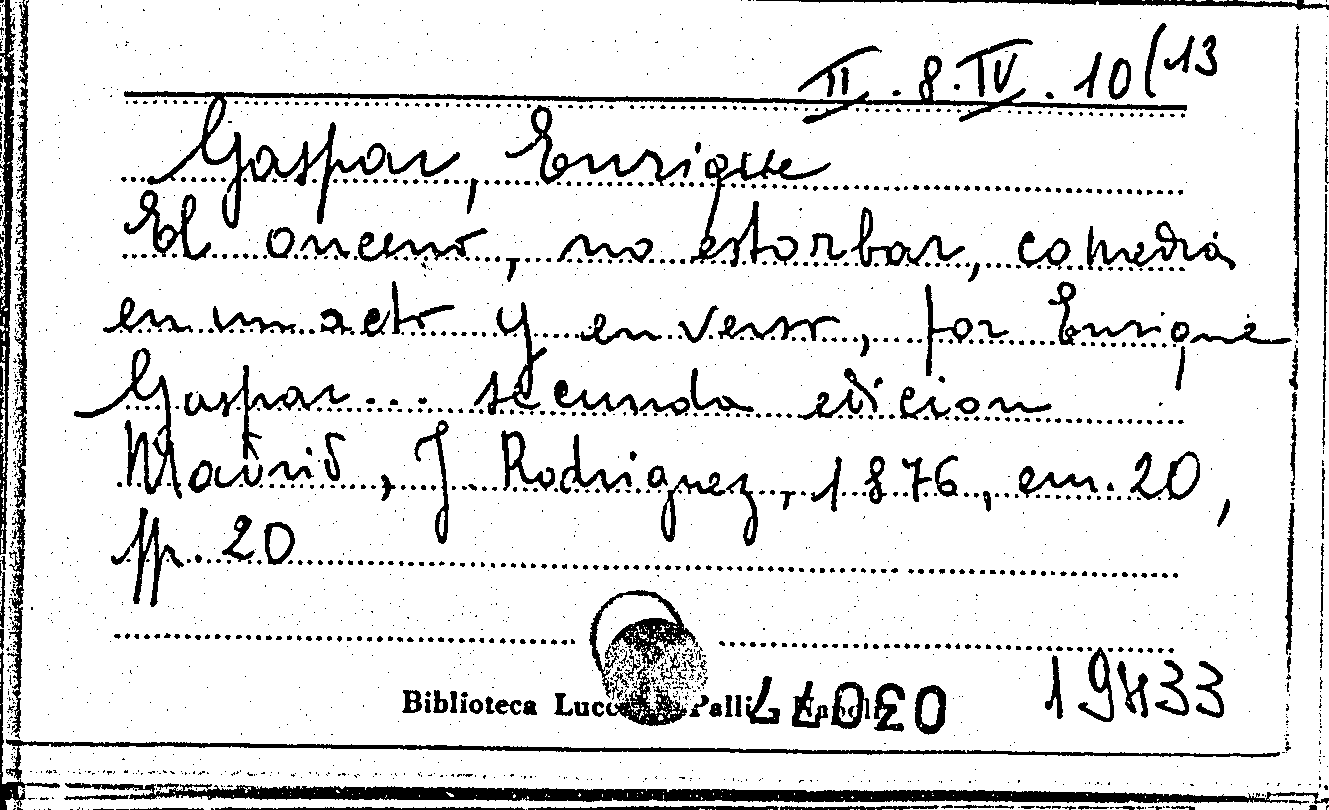 II. 8. IV. 10(13
Gaspar, Enrique
El onceno, no estorbar, comedia
en un acto y en verso, por Enrique
Gaspar... secunda edicion
Madrid, J. Rodriguez, 1876, cm. 20,
pp. 20
Biblioteca Lucc Palli Napoli
03077
19433